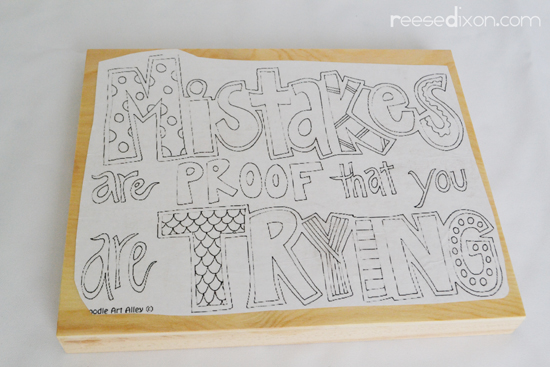 reesedixon.com
Mistakes
are PROOF that you
are TRYING
oodle Art Alley ©